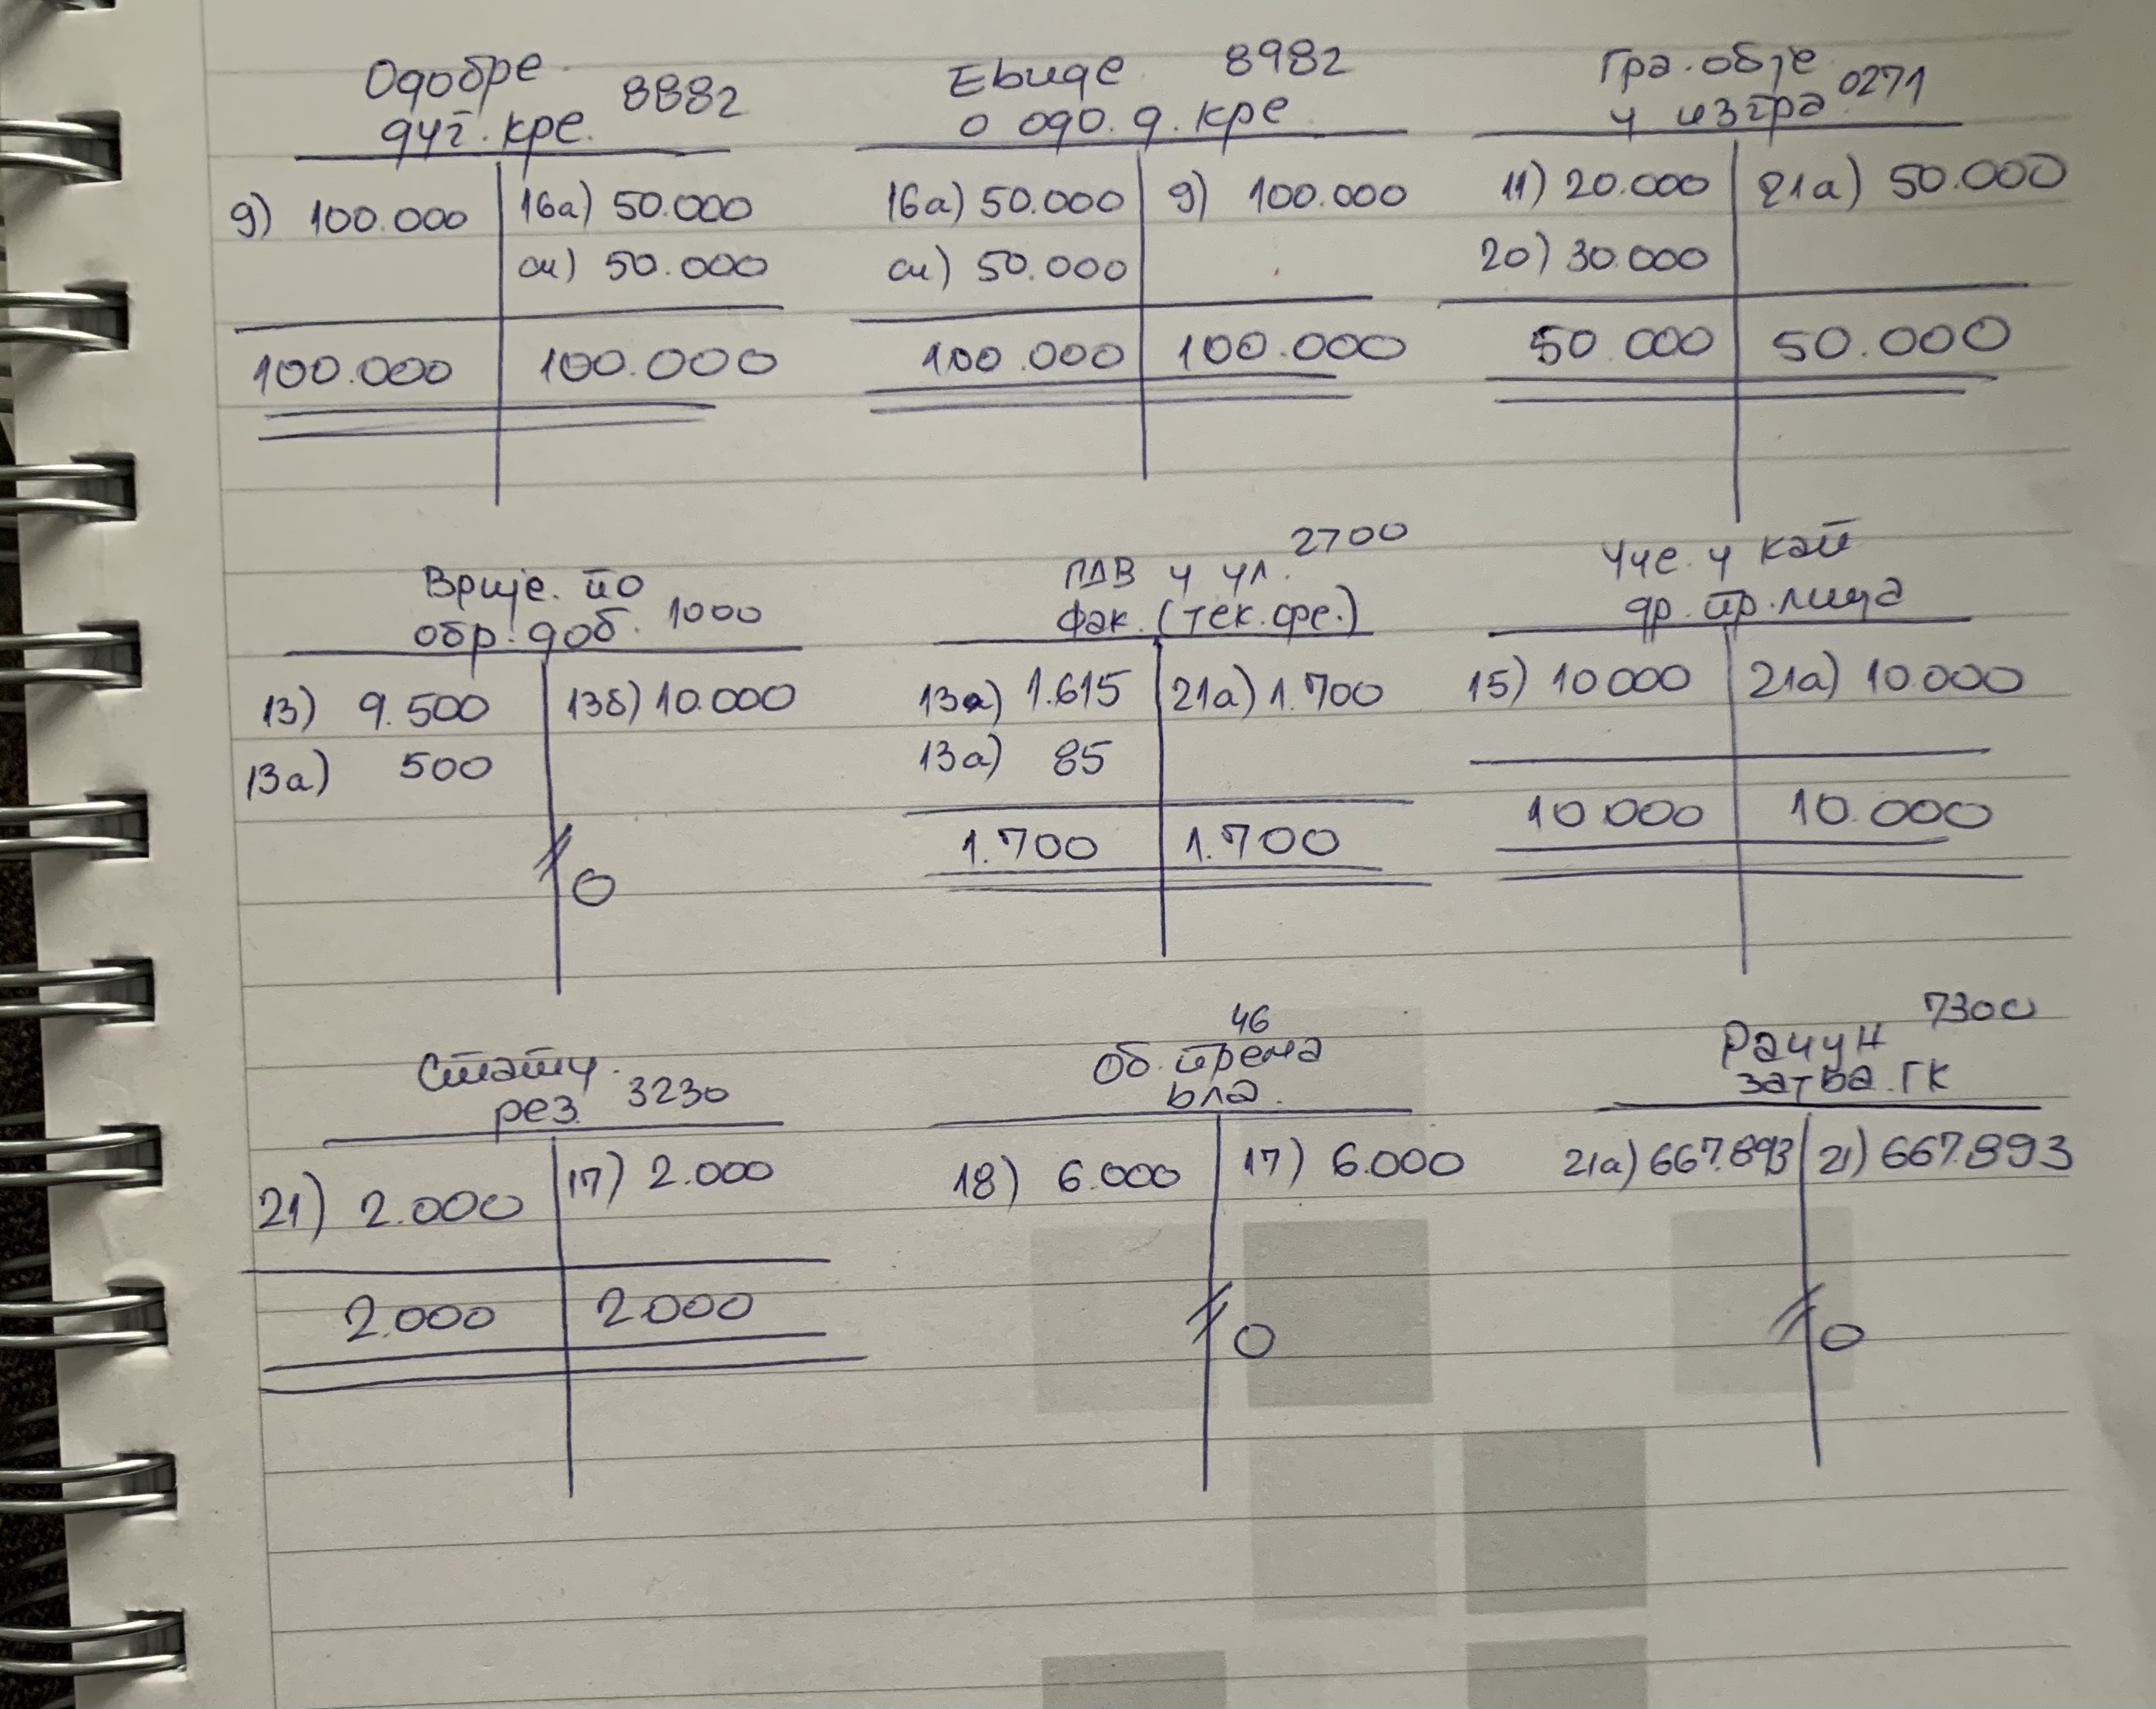 Одобре. 8882
дуг. кре.
9) 100.000 16а) 50.000
си) 50.000
100.000 100.000
Евиде. 8982
о одо. д. кре
16а) 50.000 9) 100.000
си) 50.000
100.000 100.000
Гра. обје 0271
у изгра
11) 20.000 21а) 50.000
20) 30.000
50.000 50.000
Врије. по
обр. доб. 1000
13) 9.500 13б) 10.000
13а) 500
0
ПДВ у ул. 2700
фак. (тек. фре.)
13а) 1.615 21а) 1.700
13а) 85
1.700 1.700
Уче. у кап
др. пр. лица
15) 10 000 21а) 10.000
10 000 10.000
Стату.
рез. 3230
21) 2.000 17) 2.000
2.000 2.000
46
Об. према
вла.
18) 6.000 17) 6.000
0
Рачун 7300
затва. ГК
21а) 667.893 21) 667.893
0